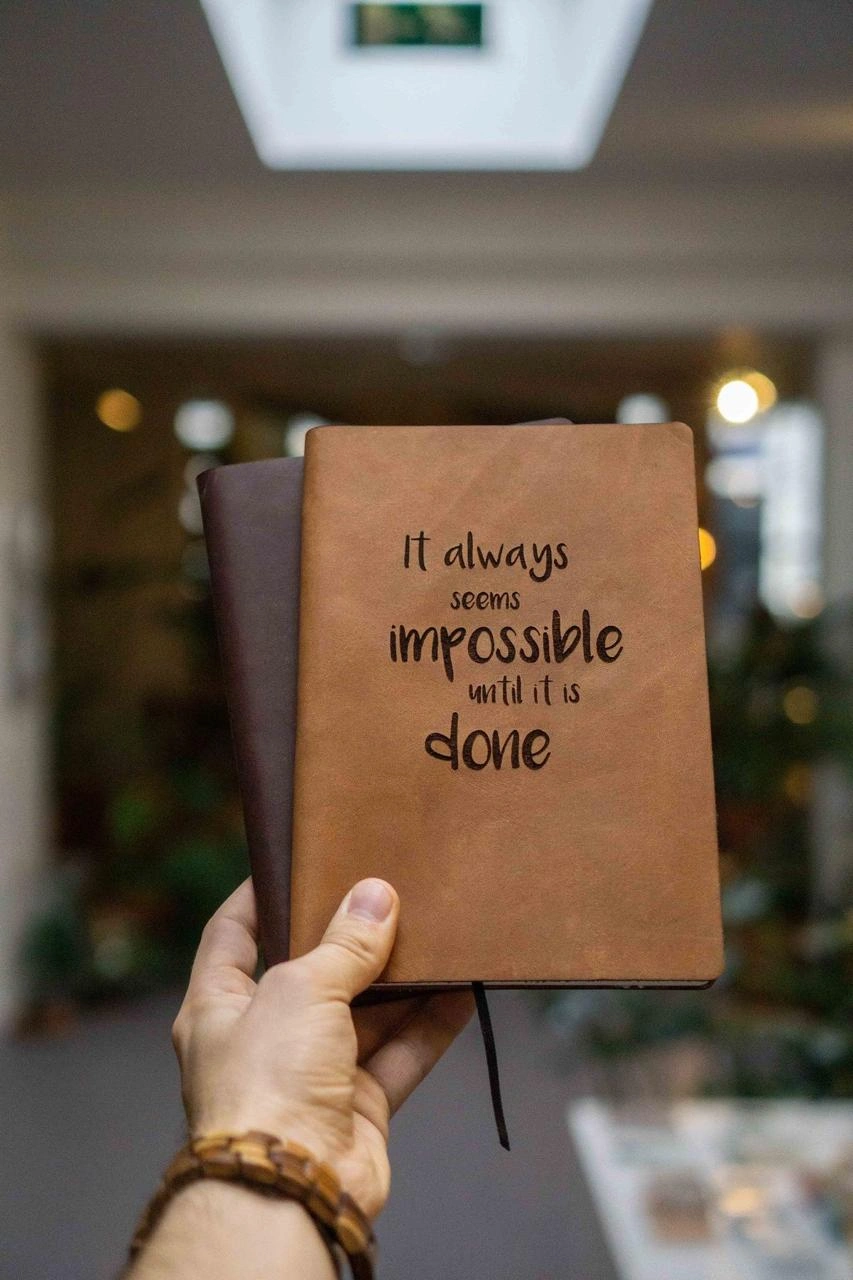 It always
seems
impossible
until it is
done